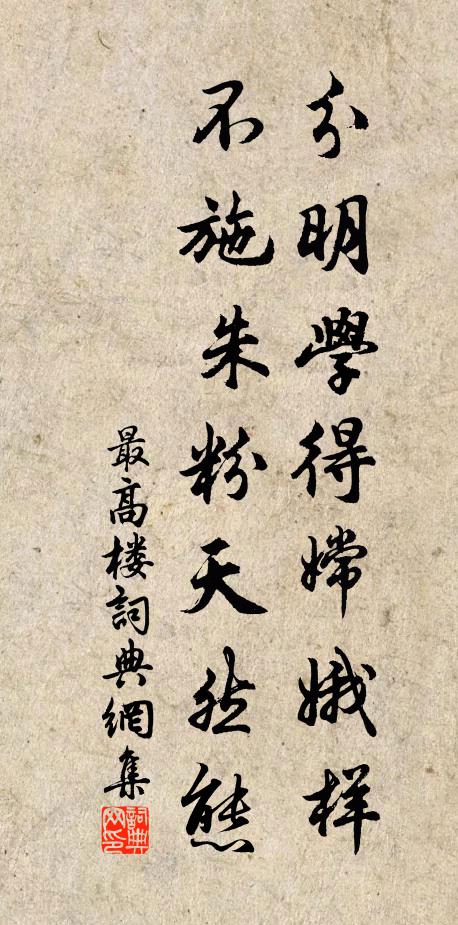 分明學得嫦娥样
不施朱粉天然態
最高楼詞典網集
詞典网印